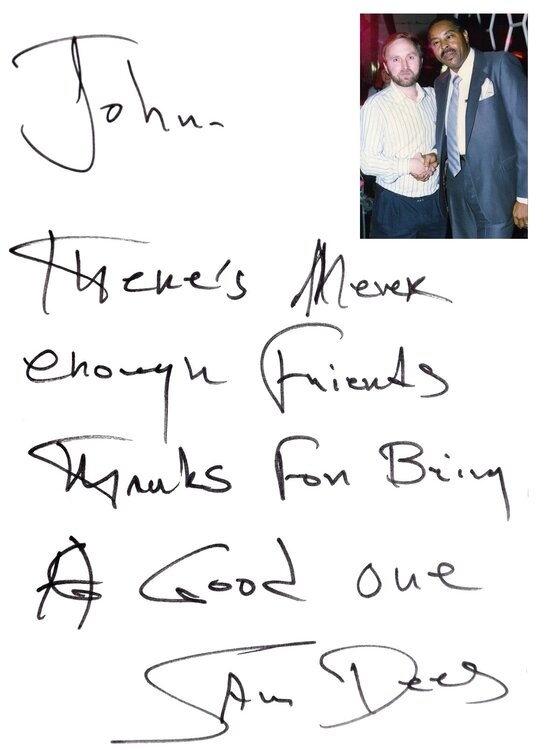 John.
There's Never
enough Friends
Thanks For Being
A Good one
Sam Dees